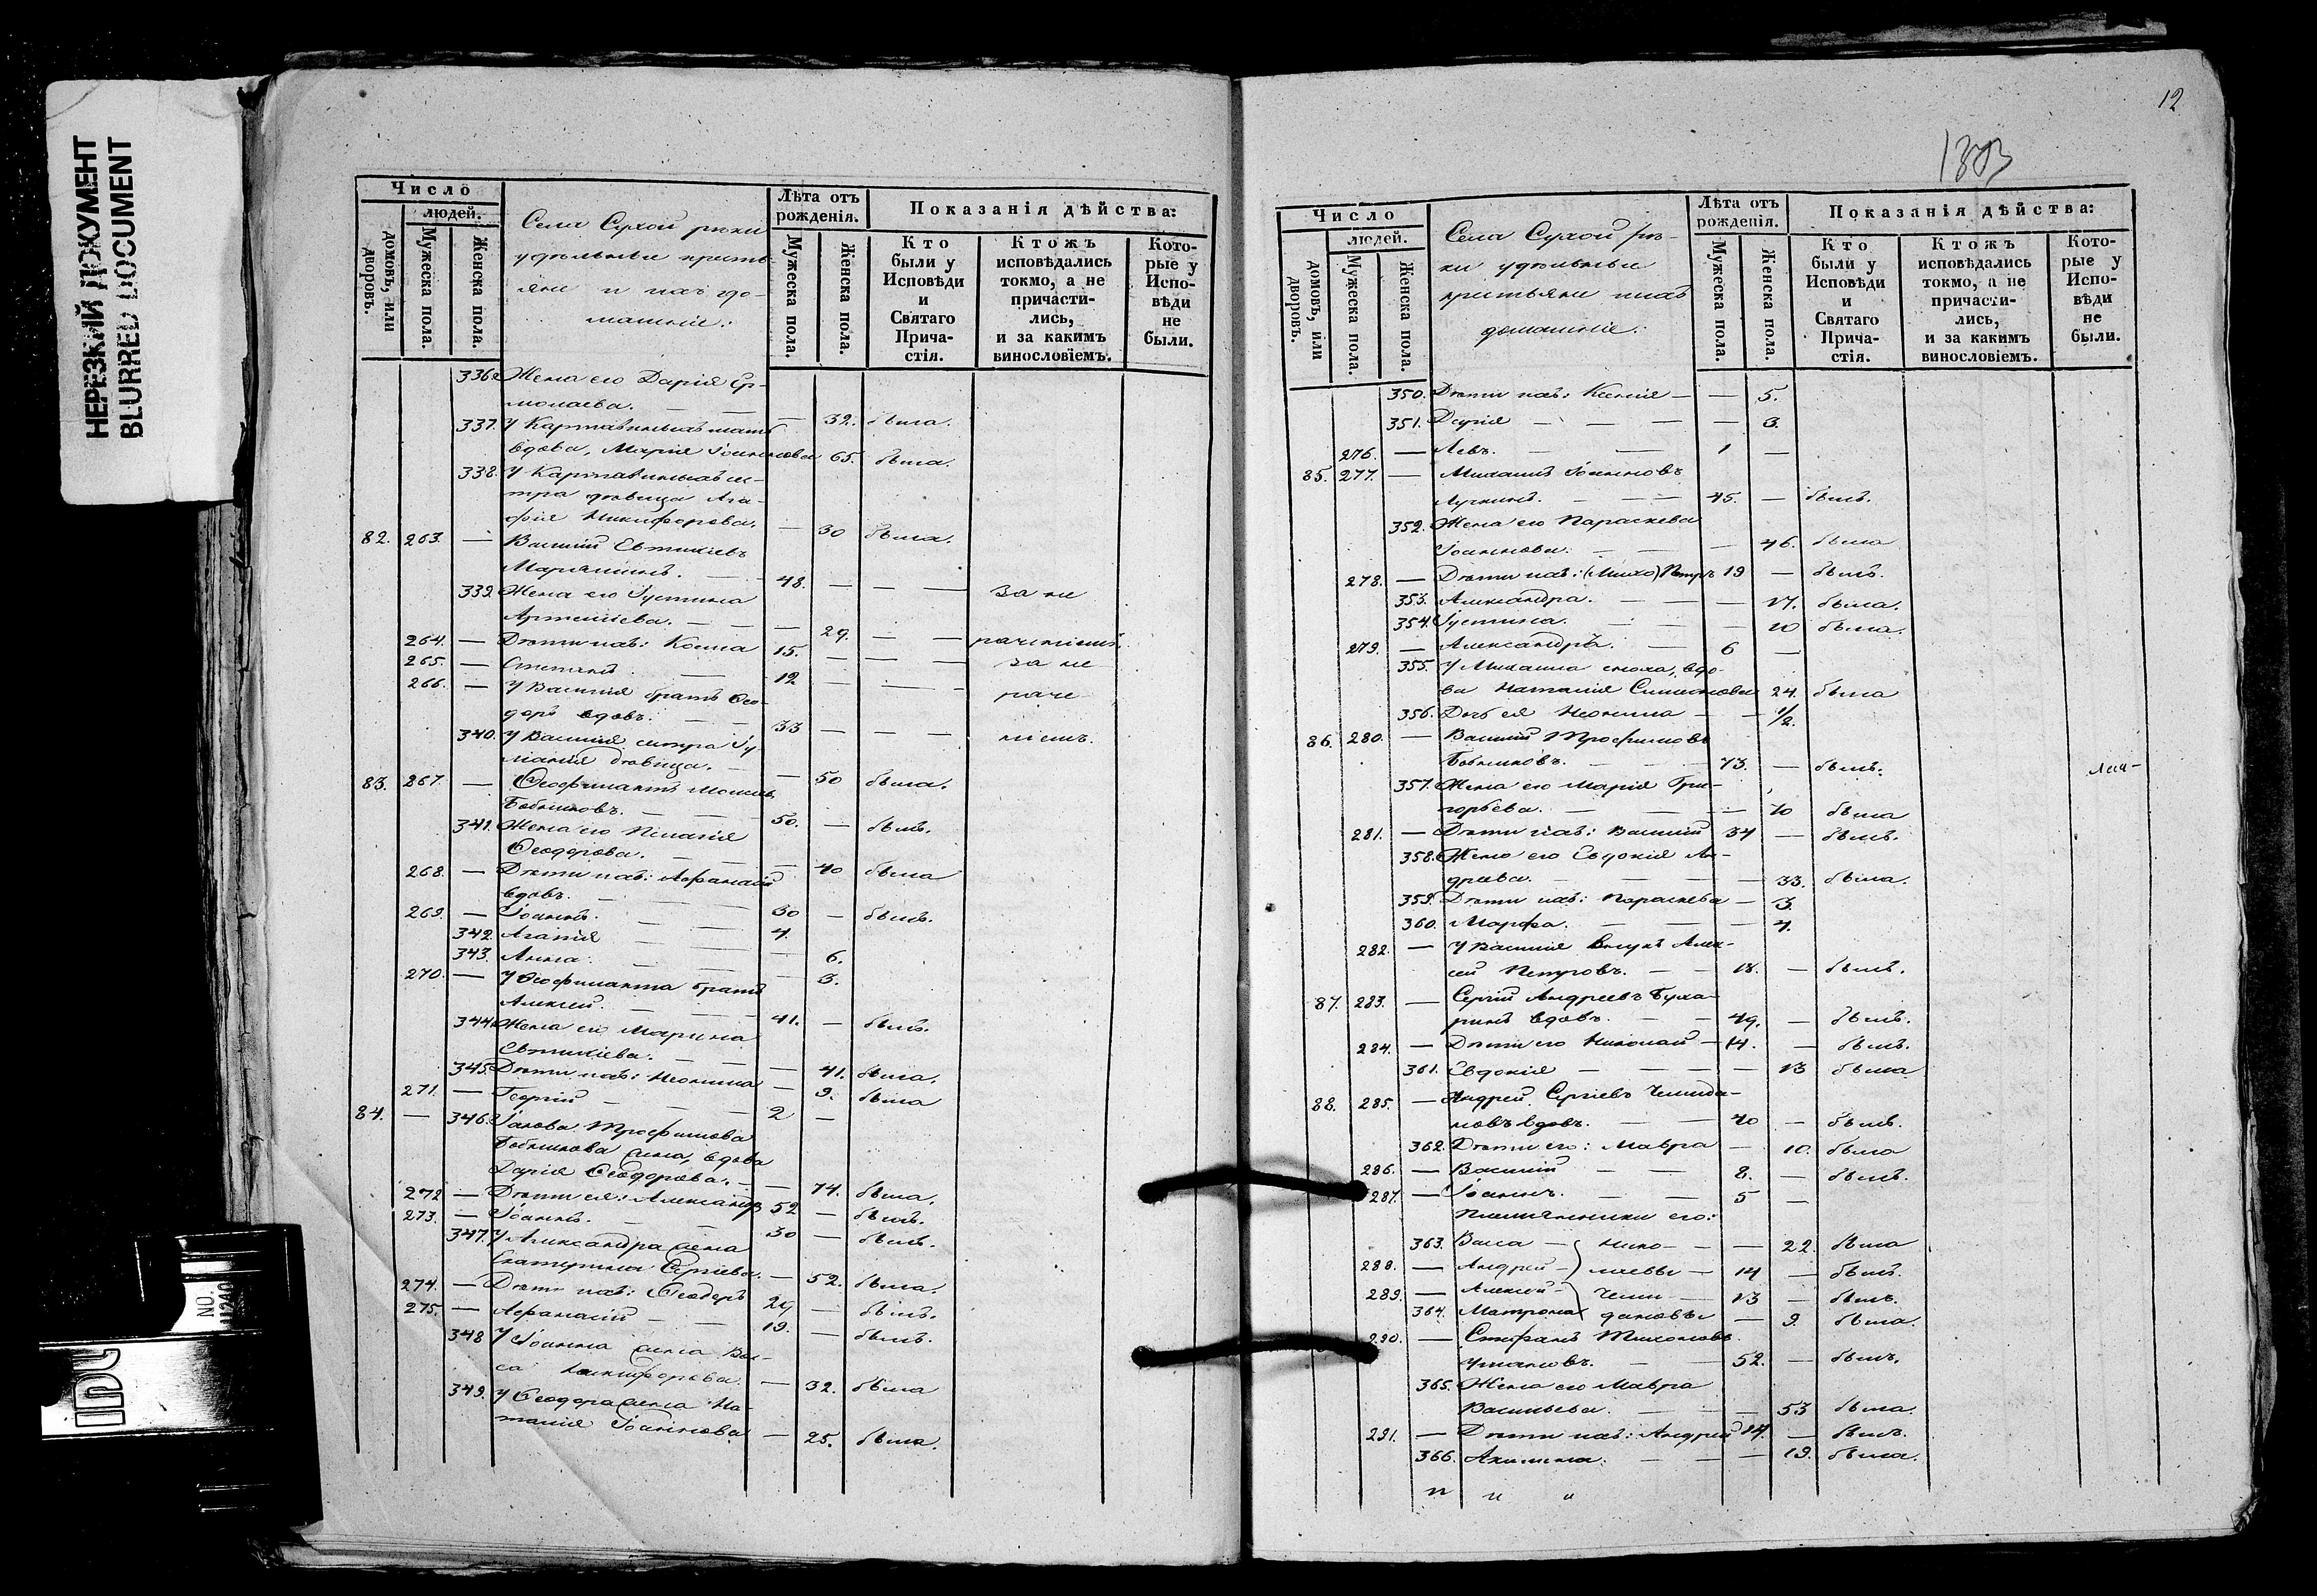 НЕРЕЗКИЙ ДОКУМЕНТ
BLURRED DOCUMENT
Число
людей.
домовъ, или дворовъ.
Мужеска пола.
Женска пола.
Села Сухой рѣки
удѣльные крестья-
яне и ихъ до-
машніе:
Лѣта отъ рожденія.
Мужеска пола.
Женска пола.
Показанія дѣйства:
Кто были у Исповѣди и Святаго Прича-стія.
Ктожъ исповѣдались токмо, а не причасти-лись, и за какимъ винословіемъ.
Кото-рые у Испо-вѣди не были.
336. Жена его Дарія Ер-
молаева. — — — 32. была.
337. У мать
вдова, Марія Іоаннова 65. была.
338. У сес-
тра дѣвица Ага-
фія Никифорова. — 30 была.
82. 263. — Василій Евтихіевъ
48. — — — за не
339. Жена его Іустина
Артеміева. — — — 29. — — раченіемъ.
264. — Дѣти ихъ: Косма 15. — — — за не
265. — Стефанъ — 12 — — —
266. — У Василія братъ Ѳео- раче-
доръ вдовъ. — — 33 — — — ніемъ.
340. У Василія сестра Іу-
ліанія дѣвица. — — 50 была.
83. 267. — Ѳеофилактъ Моисеевъ
Бобылковъ. — — 50. — былъ.
341. Жена его Пелагія
Ѳеодорова. — — — 40 была
268. — Дѣти ихъ: Аѳанасій
вдовъ. — — 30 — былъ.
269. — Іоаннъ. — — 4.
342. Агапія — — — 6.
343. Анна. — — — 3.
270. — У Ѳеофилакта братъ
Алексей. — — 41. — былъ.
344. Жена его Марина
Евтихіева. — — — 41. была.
345. Дѣти ихъ: Неонила — 9. была
271. — Георгій — — 2 —
84. — 346. Іакова Трофимова
Бобылкова жена, вдова
Дарія Ѳеодорова. — — 74. была.
272 — Дѣти ея: Александръ 52 — былъ.
273. — Іоаннъ. — — 30 — былъ.
347. У Александра жена
Екатерина Сергіева. — 52. была.
274. — Дѣти ихъ: Ѳеодоръ 29 — былъ.
275. — Аѳанасій — — 19. — былъ.
348 У Іоанна жена Вас-
са Никифорова. — 32. была
349. У Ѳеодора жена На-
талія Іоаннова — 25. была.
NO. 1240
IDC
12
1803
Число
людей.
домовъ, или дворовъ.
Мужеска пола.
Женска пола.
Села Сухой рѣ-
ки удѣльные
крестьяне ихъ
домашніе:
Лѣта отъ рожденія.
Мужеска пола.
Женска пола.
Показанія дѣйства:
Кто были у Исповѣди и Святаго Прича-стія.
Ктожъ исповѣдались токмо, а не причасти-лись, и за какимъ винословіемъ.
Кото-рые у Испо-вѣди не были.
350. Дѣти ихъ: Ксенія — — 5.
351. Дарія — — — — 3.
276. — Левъ. — — 1 —
85. 277. — Михаилъ Іоанновъ
Лучкинъ. — — — 45. — былъ.
352. Жена его Параскева
Іоаннова. — — — 46. была
278. — Дѣти ихъ: Петръ 19 — былъ.
353. Александра. — — — 17. была.
354. Іустина. — — — 10 была.
279. — Александръ. — 6 —
355. У Михаила сноха, вдо-
ва Наталія Симеонова 24. была
356. Дочь ея Неонила — — 1/2.
86. 280. — Василій Трофимовъ
Бобылковъ. — — 73. — былъ.
357. Жена его Марія Гри-
горьева. — — — 70 была
281. — Дѣти ихъ: Василій 34 — былъ.
358. Жена его Евдокія Ан-
дреева. — — — 33. была.
359. Дѣти ихъ: Параскева — 3.
360. Марѳа. — — — 4.
282. — У Василія внукъ Алек-
сей Петровъ. — — 18. — былъ.
87. 283. — Сергій Андреевъ Буха-
ринъ вдовъ. — — 49. — былъ.
284. — Дѣти его Николай — 14. — былъ.
361. Евдокія — — — — 13 была
88. 285. — Андрей Сергіевъ Чемода-
новъ вдовъ. — — 40 — былъ.
362. Дѣти его: Мавра — 10. была
286. — Василій — — 8. — былъ.
287. — Іоаннъ. — — 5 —
Племянники его:
363. Васса — Нико- — — 22. была
288. — Андрей — лаевы — 14 — былъ.
289. — Алексей — Чемо- — 13 — былъ.
364. Матрона дановы — 9. была.
290. — Стефанъ Тихоновъ
52. — былъ.
365. Жена его Мавра
Васильева. — — — 53 была.
291. — Дѣти ихъ: Андрей 14. — былъ.
366. Акилина. — — — 19. была.